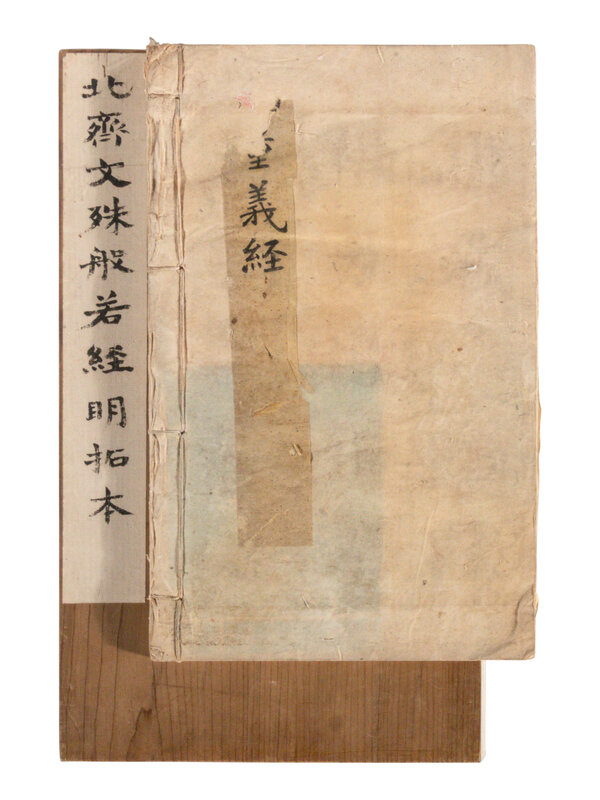 義経
北齊文殊般若經明拓本